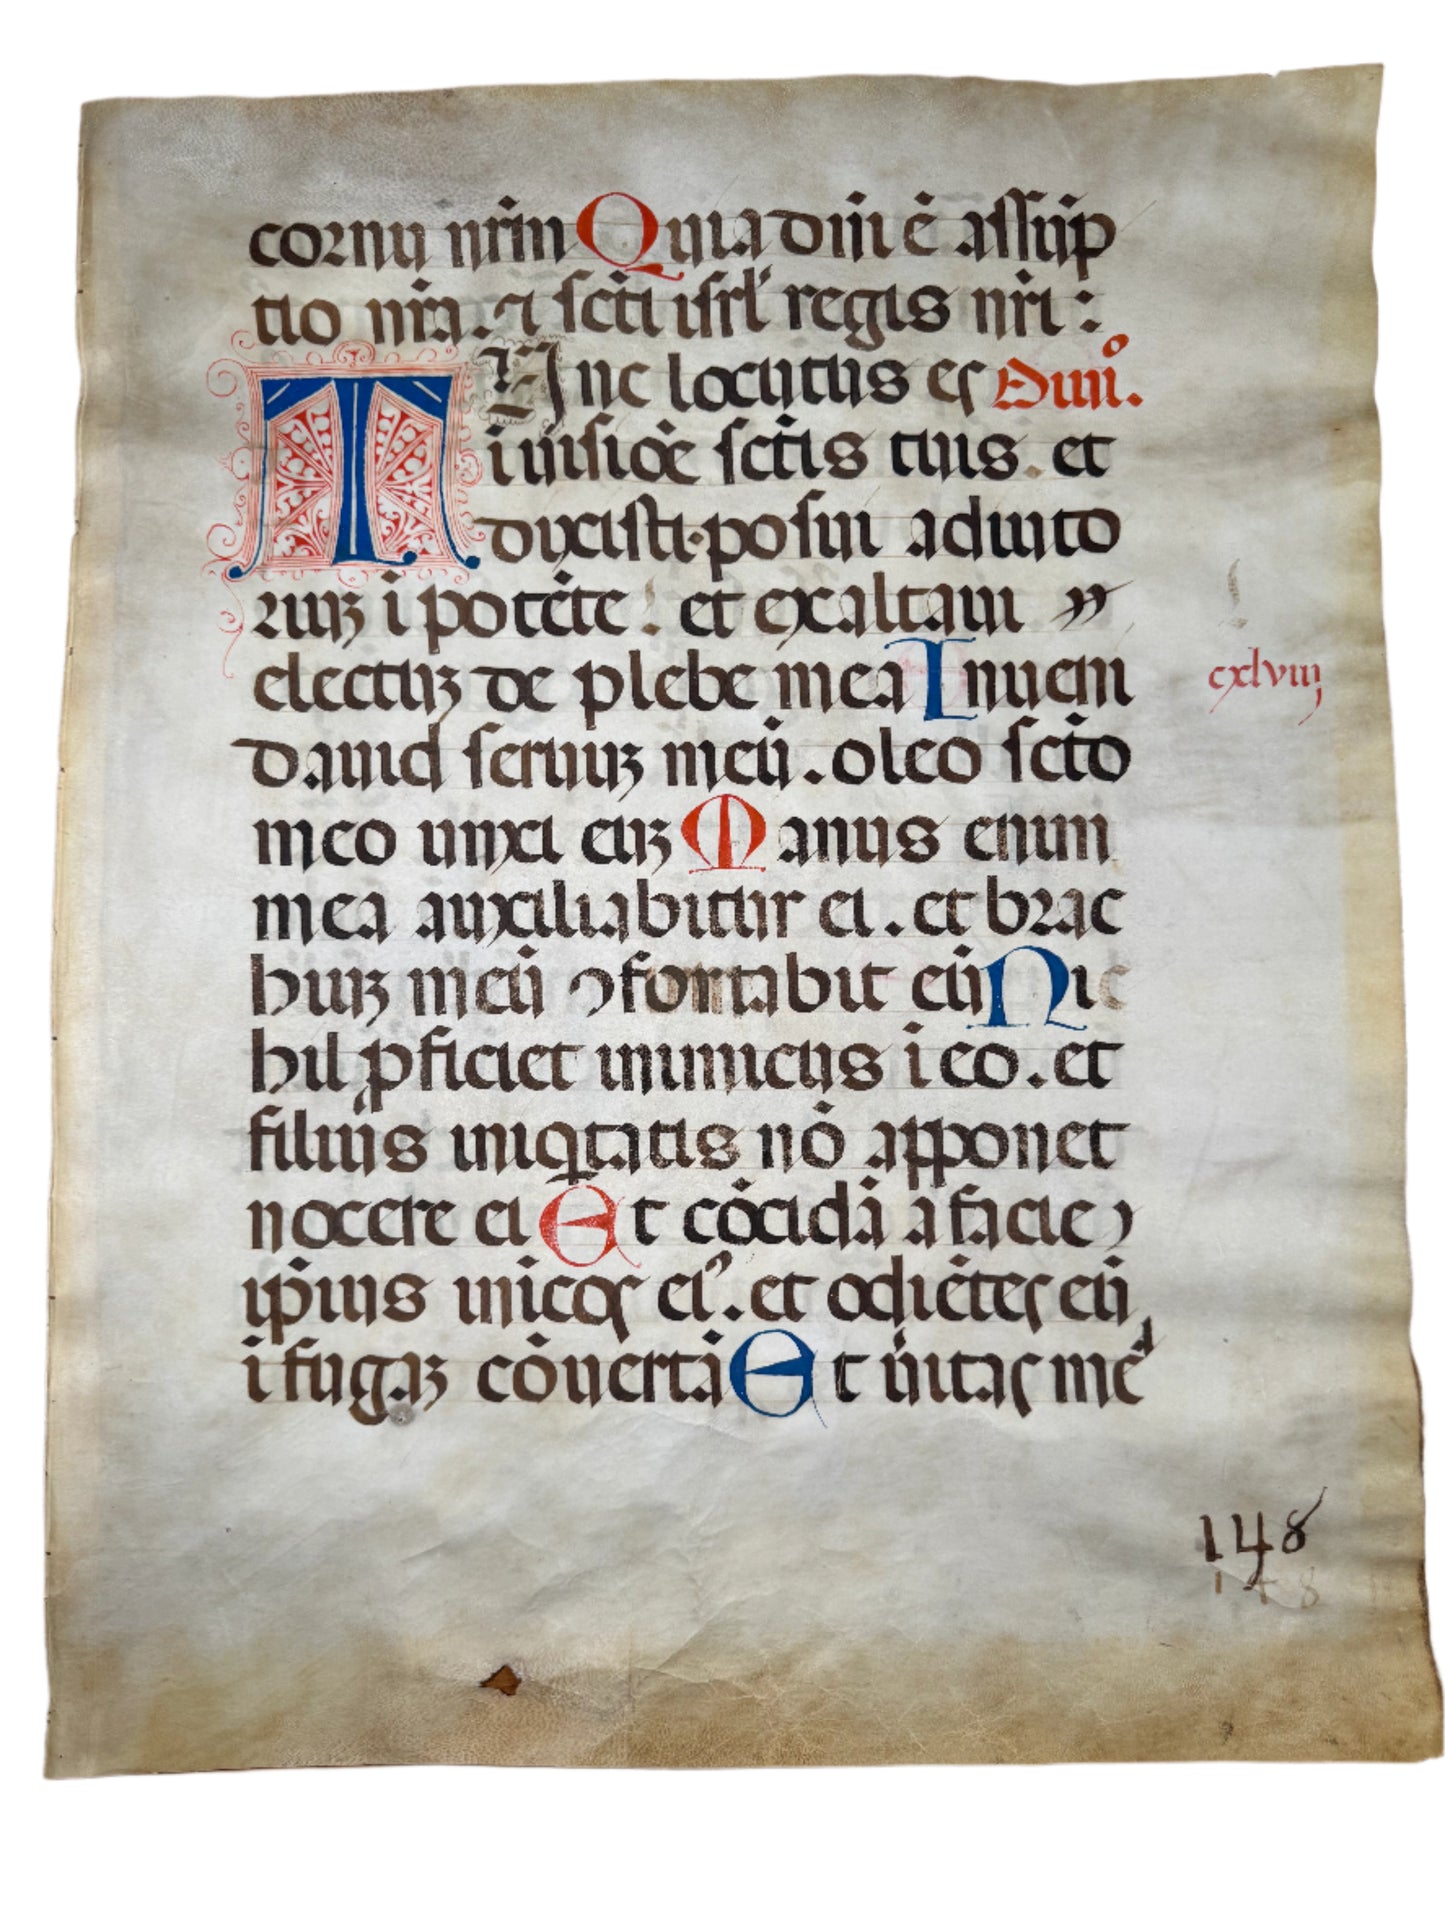 cornu nr̄m Quia dn̄i ē assūp
tio nr̄a. ⁊ scti isrl' regis nr̄i :
TUnc locutus es Diuio.
i uisiōe sctis tuis. et
dixisti. posui adiuto
riuȝ i potēte. et exaltaui
electuȝ de plebe mea Inueni
cxlviij
dauid seruuȝ meū. oleo scto
meo unxi euȝ Manus enim
mea auxiliabitur ei. et brac
hiuȝ meū ꝯfortabit eū Nic
hil ꝓficiet inimicus i eo. et
filius iniqtatis nō apponet
nocere ei Et cōcidā a facie
ip̄ius inicos ei'. et odiētes eū
i fugaȝ cōuertā Et ūitas mē
148
148